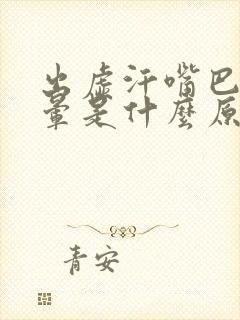 出虚汗嘴巴
晕是什麼原
青安